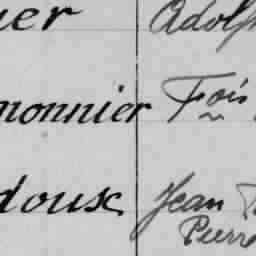 er Adolp
monnier Fois
doux Jean
Pierre